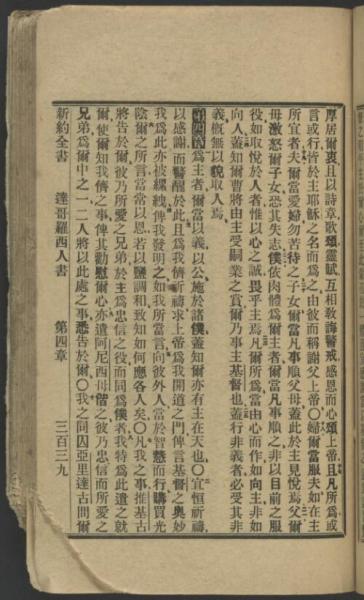 厚居爾衷且以詩章歌頌靈賦互相敎誨警戒感恩而心頌上帝且凡所爲或
言或行皆於主耶穌之名而爲之由彼而稱謝父上帝〇婦爾當服夫如在主
所宜者夫爾當愛婦勿苦待之子女爾當凡事順父母蓋此於主見悅焉父爾
毋激怒爾子女恐其失志僕依肉體爲爾主者爾當凡事順之非以目前之服
役如取悅於人者惟以心之誠畏乎主焉凡爾所爲當由心而作如向主非如
向人蓋知爾曹將由主受嗣業之賞爾乃事主基督也蓋行非義者必受其非
義槪無以貌取人焉
第四章爲主者爾當以義以公施於諸僕蓋知爾亦有主在天也〇宜恒祈禱
以感謝而警醒於此且爲我儕祈禱求上帝爲我開道之門俾言基督之奧妙
我爲此亦被縲絏俾我發明之如我所當言向彼外人當於智慧而行購買光
陰爾之所言當常以恩若以鹽調和致知如何應各人矣〇凡我之事推基古
將告於爾彼乃所愛之兄弟於主爲忠信之役而同爲僕者我特爲此遣之就
爾使爾知我儕之事俾其勸慰爾心亦遣阿尼西母偕之彼乃忠信而所愛之
兄弟爲爾中之一二人將以此處之事悉告於爾〇我之同囚亞里達古問爾
新約全書 達哥羅西人書 第四章 三百三九